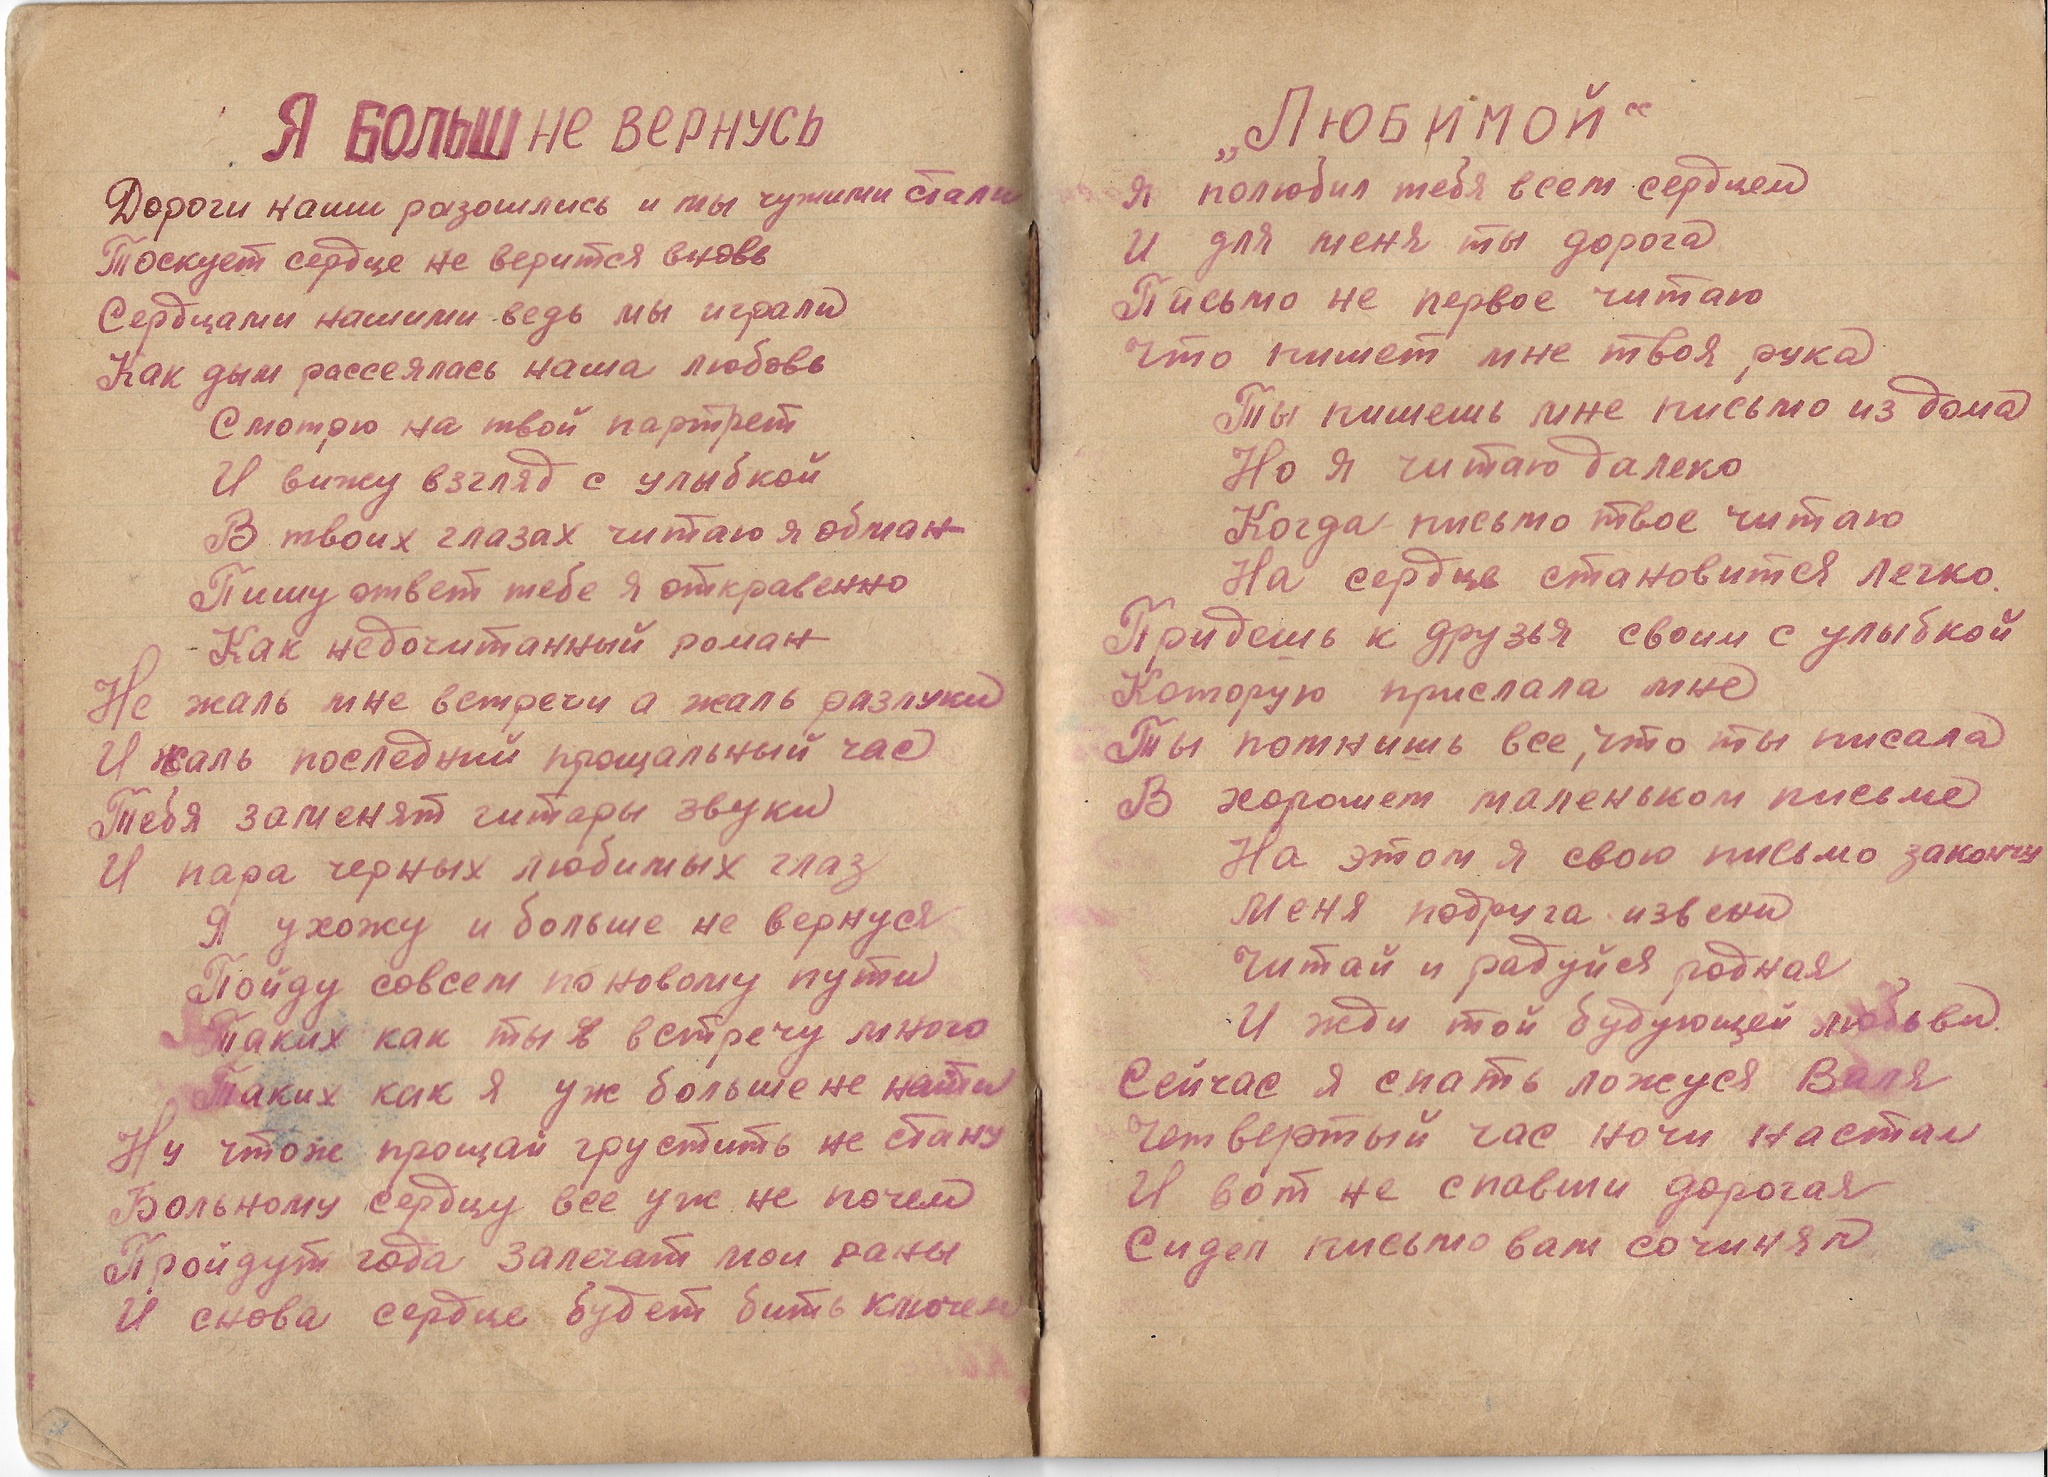 Я БОЛЬШ НЕ ВЕРНУСЬ
Дороги наши разошлись и мы чужими стали
Тоскует сердце не верится вновь
Сердцами нашими ведь мы играли
Как дым рассеялась наша любовь
Смотрю на твой партрет
И вижу взгляд с улыбкой
В твоих глазах читаю я обман
Пишу ответ тебе я откравенно
Как недочитанный роман
Не жаль мне встречи а жаль разлуки
И жаль последний прощальный час
Тебя заменят гитары звуки
И пара черных любимых глаз
Я ухожу и больше не вернуся
Пойду совсем по новому пути
Таких как ты я встречу много
Таких как я уж больше не найти
Ну чтож прощай грустить не стану
Больному сердцу все уж не почем
Пройдут года залечат мои раны
И снова сердце будет бить ключем
„ЛЮБИМОЙ“
Я полюбил тебя всем сердцем
И для меня ты дорога
Письмо не первое читаю
Что пишет мне твоя рука
Ты пишешь мне письмо из дома
Но я читаю далеко
Когда письмо твое читаю
На сердце становится легко.
Придешь к друзья своим с улыбкой
Которую прислала мне
Ты помнишь все, что ты писала
В хорошем маленьком письме
На этом я свою письмо закончу
Меня подруга извени
Читай и радуйся родная
И жди той будующей любьви.
Сейчас я спать ложуся Валя
Четвертый час ночи настал
И вот не спавши дорогая
Сидел письмо вам сочинял